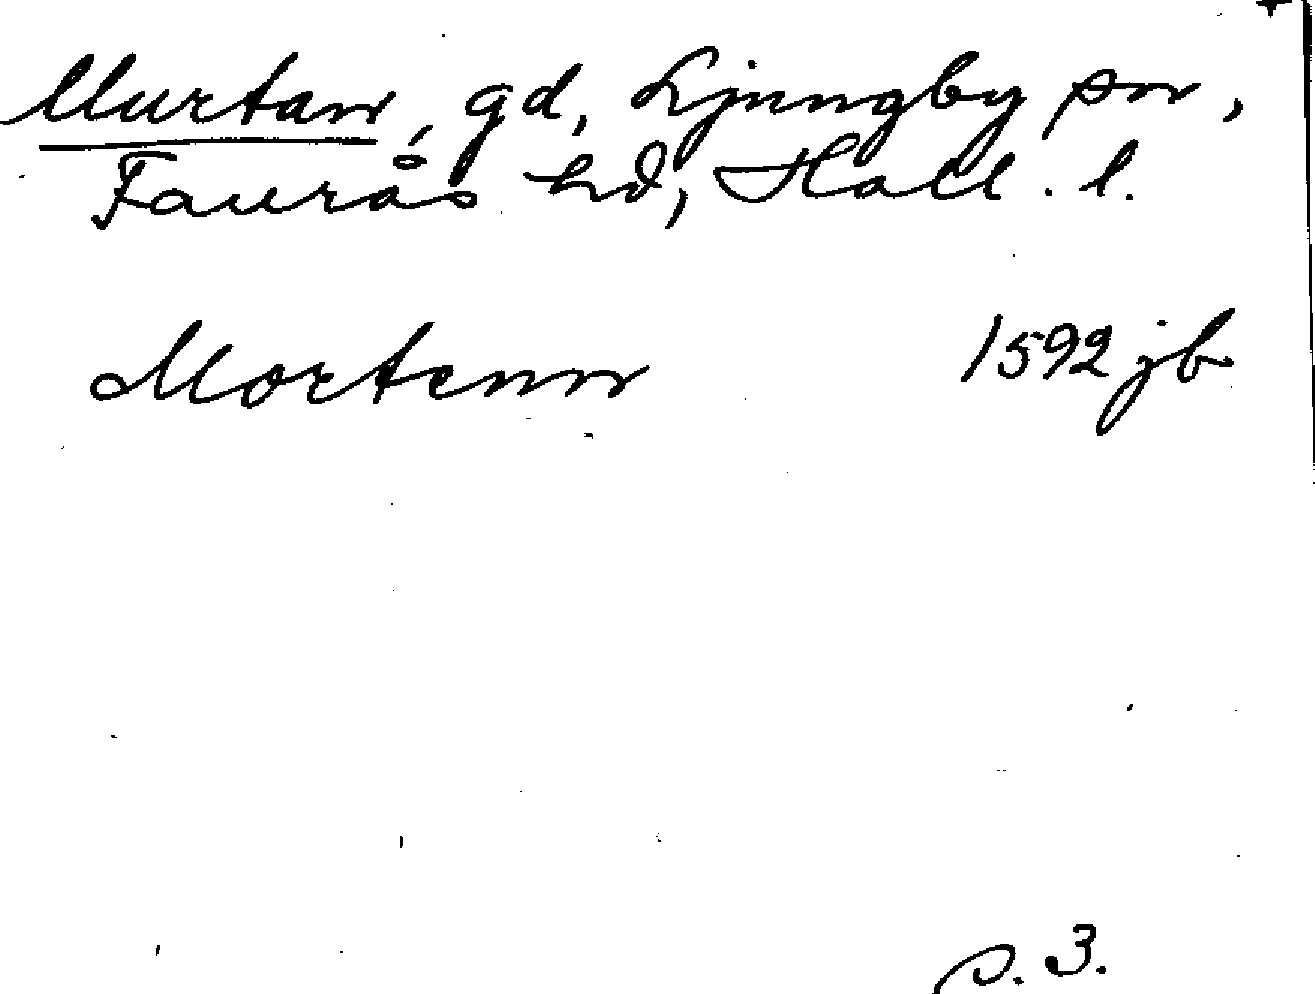 Murtan, gd, Ljungby sn,
Faurås hd, Hall. l.
Mortenn 1592 jb
s. 3.